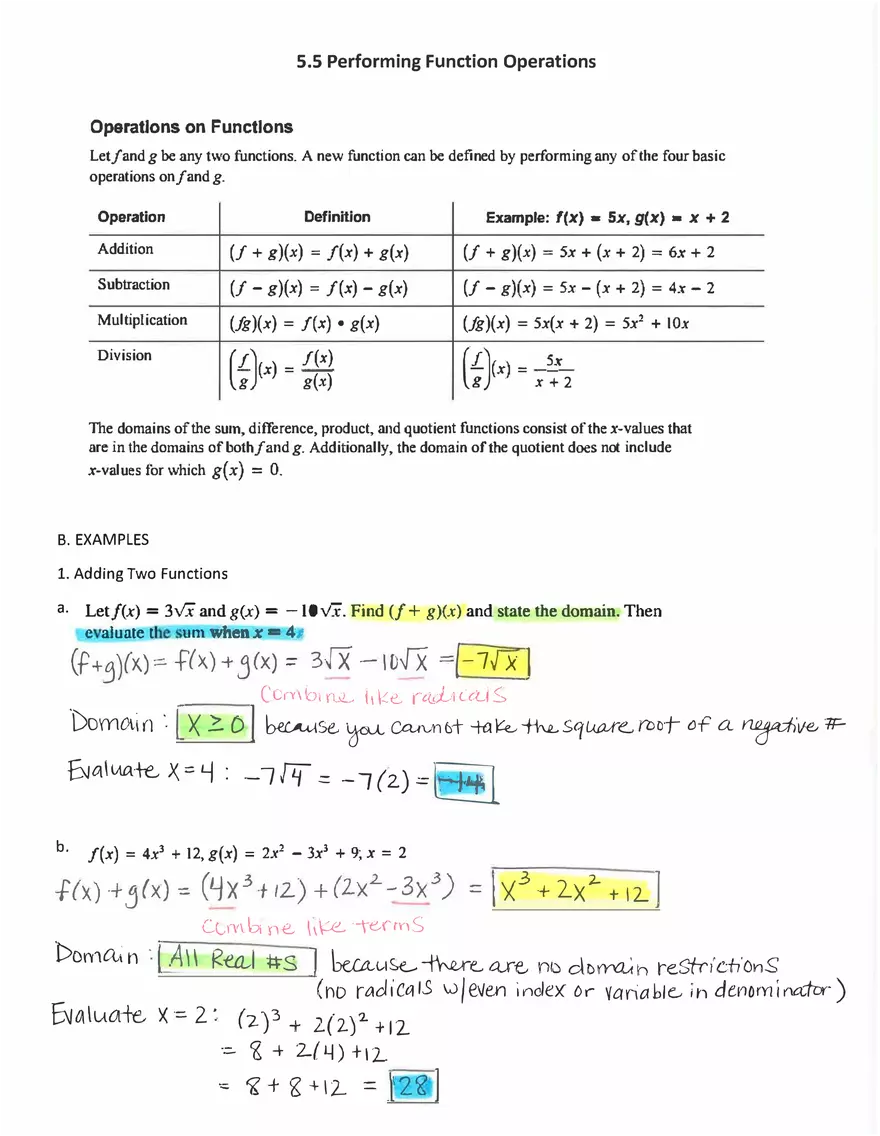 5.5 Performing Function Operations
Operations on Functions
Let f and g be any two functions. A new function can be defined by performing any of the four basic
operations on f and g.
Operation Definition Example: f(x) = 5x, g(x) = x + 2
Addition (f + g)(x) = f(x) + g(x) (f + g)(x) = 5x + (x + 2) = 6x + 2
Subtraction (f − g)(x) = f(x) − g(x) (f − g)(x) = 5x − (x + 2) = 4x − 2
Multiplication (fg)(x) = f(x) • g(x) (fg)(x) = 5x(x + 2) = 5x² + 10x
Division (f/g)(x) = f(x)/g(x) (f/g)(x) = 5x/(x + 2)
The domains of the sum, difference, product, and quotient functions consist of the x-values that
are in the domains of both f and g. Additionally, the domain of the quotient does not include
x-values for which g(x) = 0.
B. EXAMPLES
1. Adding Two Functions
a. Let f(x) = 3√x and g(x) = −10√x. Find (f + g)(x) and state the domain. Then
evaluate the sum when x = 4.
(f+g)(x) = f(x) + g(x) = 3√x − 10√x = −7√x
Combine like radicals
Domain : x ≥ 0 because you cannot take the square root of a negative #
Evaluate x = 4 : −7√4 = −7(2) = −14
b. f(x) = 4x³ + 12, g(x) = 2x² − 3x³ + 9; x = 2
f(x) + g(x) = (4x³ + 12) + (2x² − 3x³) = x³ + 2x² + 12
Combine like terms
Domain : All Real #s because there are no domain restrictions
(no radicals w/even index or variable in denominator)
Evaluate x = 2 : (2)³ + 2(2)² + 12
= 8 + 2(4) + 12
= 8 + 8 + 12 = 28